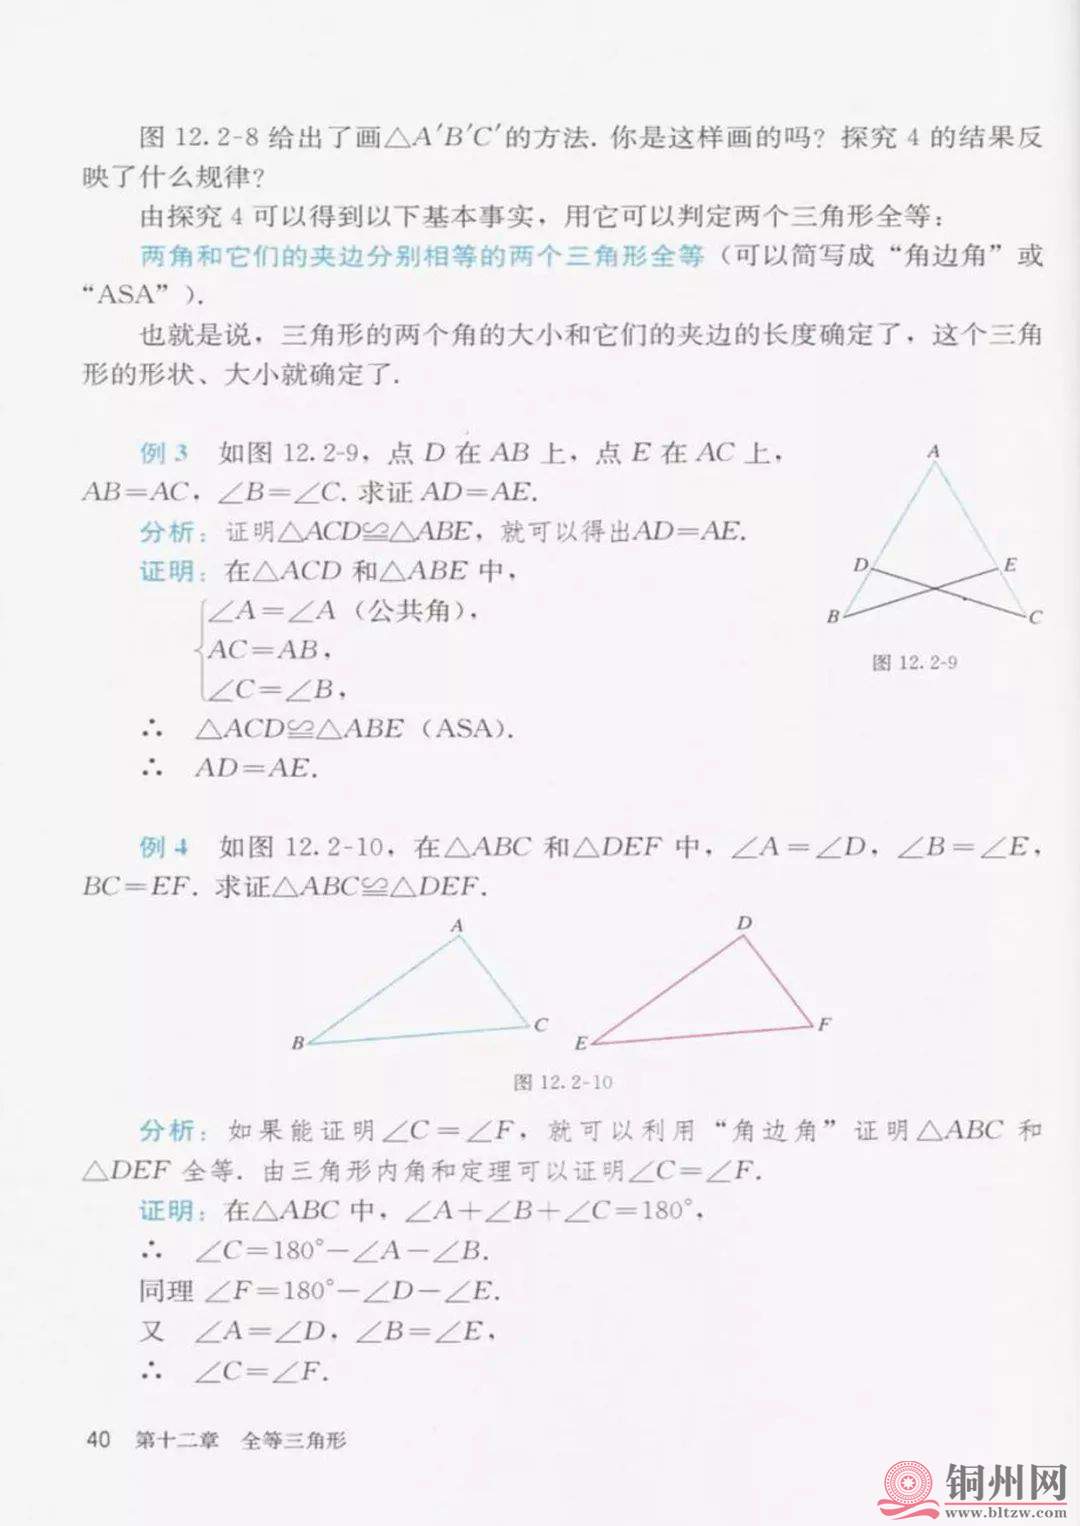 图 12.2-8 给出了画△A′B′C′的方法. 你是这样画的吗? 探究 4 的结果反
映了什么规律?
由探究 4 可以得到以下基本事实，用它可以判定两个三角形全等：
两角和它们的夹边分别相等的两个三角形全等（可以简写成“角边角”或
“ASA”）.
也就是说，三角形的两个角的大小和它们的夹边的长度确定了，这个三角
形的形状、大小就确定了.
例 3 如图 12.2-9，点 D 在 AB 上，点 E 在 AC 上，
AB=AC，∠B=∠C. 求证 AD=AE.
分析：证明△ACD≌△ABE，就可以得出AD=AE.
证明：在△ACD 和△ABE 中，
∠A=∠A（公共角），
AC=AB，
∠C=∠B，
∴ △ACD≌△ABE（ASA）.
∴ AD=AE.
A
D
E
B
C
图 12.2-9
例 4 如图 12.2-10，在△ABC 和△DEF 中，∠A=∠D，∠B=∠E，
BC=EF. 求证△ABC≌△DEF.
A
D
B
C
E
F
图 12.2-10
分析：如果能证明∠C=∠F，就可以利用“角边角”证明△ABC 和
△DEF 全等. 由三角形内角和定理可以证明∠C=∠F.
证明：在△ABC 中，∠A+∠B+∠C=180°，
∴ ∠C=180°-∠A-∠B.
同理 ∠F=180°-∠D-∠E.
又 ∠A=∠D，∠B=∠E，
∴ ∠C=∠F.
40 第十二章 全等三角形
铜州网
www.bltzw.com